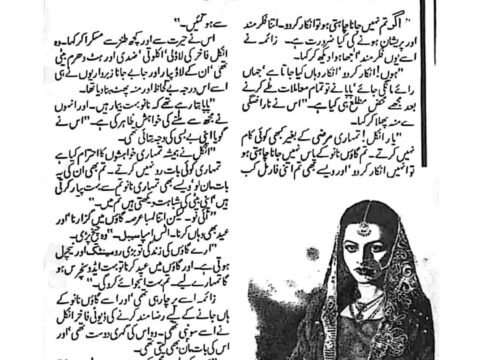 "اگر تم نہیں جانا چاہتی ہو تو انکار کر دو۔ اتنا فکر مند
اور پریشان ہونے کی کیا ضرورت ہے۔ زائمہ نے
اسے یوں فکر مند الجھا ہوا دیکھ کر کہا۔
"ہوں! انکار کر دو' انکار وہاں کیا جاتا ہے' جہاں
رائے مانگی جائے' پاپا نے تو تمام معاملات طے کرنے
بعد مجھے محض مطلع ہی کیا ہے۔" اس نے ناراضگی
سے منہ پھلا کر کہا۔
"یار انکل! تمہاری مرضی کے بغیر بھی کوئی کام
نہیں کرتے۔ تم گاؤں نانو کے پاس نہیں جانا چاہتی ہو
تو انہیں انکار کر دو' اور ویسے بھی تم اتنی فارمل کب
سے ہو گئیں۔"
اس نے حیرت سے اور کچھ طنز سے مسکرا کر کہا۔ وہ
انکل فاخر کی لاڈلی' اکلوتی' ضدی اور ہٹ دھرم بیٹی
تھی' ان کے لاڈ پیار اور جا بے جا ناز برداریوں نے ہی
اسے اس درجہ بے لحاظ اور منہ پھٹ بنا دیا تھا۔
"پاپا بتا رہے تھے کہ نانو بہت بیمار ہیں۔ اور انہوں
نے مجھ سے ملنے کی خواہش ظاہر کی ہے۔" اس نے
گویا اپنی بے بسی کی وجہ بتائی تھی۔
"انکل نے ہمیشہ تمہاری خواہشوں کا احترام کیا ہے
تمہاری کوئی بات رد نہیں کرتے۔ تم بھی ان کی یہ
بات مان لو' ویسے بھی تمہاری نانو تم سے بہت پیار کرتی
ہیں' اپنی بیٹی کی شباہت دیکھتی ہیں تم میں۔"
"آئی نو۔ لیکن اتنا لمبا عرصہ گاؤں میں گزارنا' اور
عید بھی وہاں کرنا۔ اٹس امپاسیبل۔" وہ چیخ پڑی۔
"ارے گاؤں کی زندگی تو بڑی رومینٹک اور نیچرل
ہوتی ہے۔ اور گاؤں میں عید کرنا تو بہت ایڈونچرس ہو
گا تمہارے لیے۔ تم بہت انجوائے کرو گی۔"
زائمہ اسے پرچا رہی تھی' اور اسے گاؤں نانو کے
ہاں جانے کے لیے رضا مند کرنے کی ڈیوٹی فاخر انکل
نے اسے سونپی تھی۔ وہ اس کی گہری دوست تھی' اور
اس کی بات مان بھی لیتی تھی۔